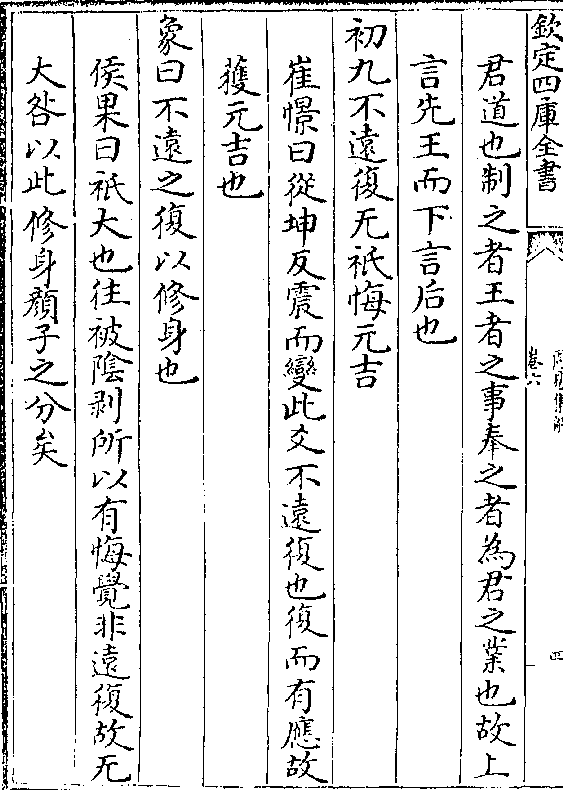 欽定四庫全書
卷六
四
君道也制之者王者之事奉之者為君之業也故上
言先王而下言后也
初九不遠復无祇悔元吉
崔憬曰從坤反震而變此爻不遠復也復而有應故
獲元吉也
象曰不遠之復以修身也
侯果曰祇大也往被陰剥所以有悔覺非遠復故无
大咎以此修身顔子之分矣